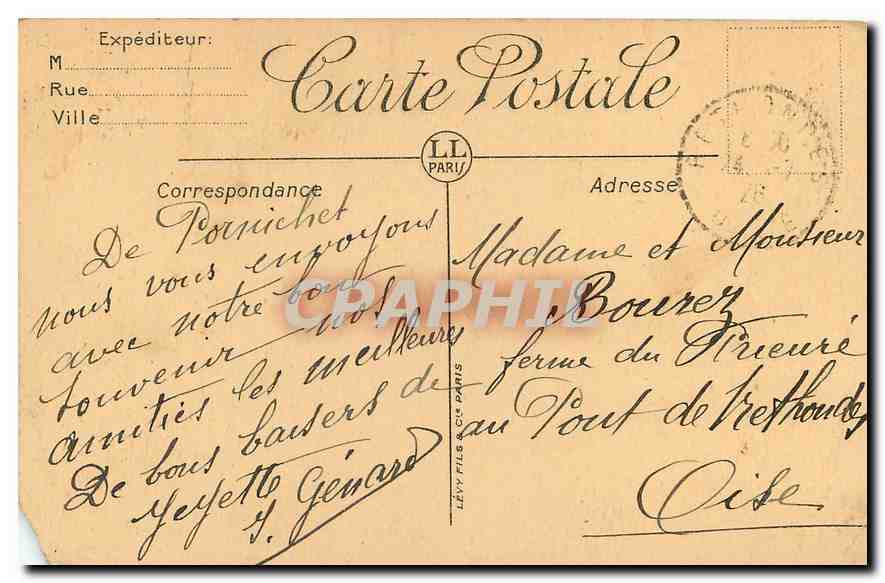 Expéditeur:
M
Rue
Ville
Carte Postale
LL
PARIS
Correspondance
Adresse
De Pornichet
nous vous envoyons
avec notre bon
souvenir nos
amitiés les meilleures
De bons baisers de
Yeyette
Y. Génard
Madame et Monsieur
Bourez
ferme du Prieuré
au Pont de Rethondes
Oise
LÉVY FILS & Cie PARIS
CPAPHIL